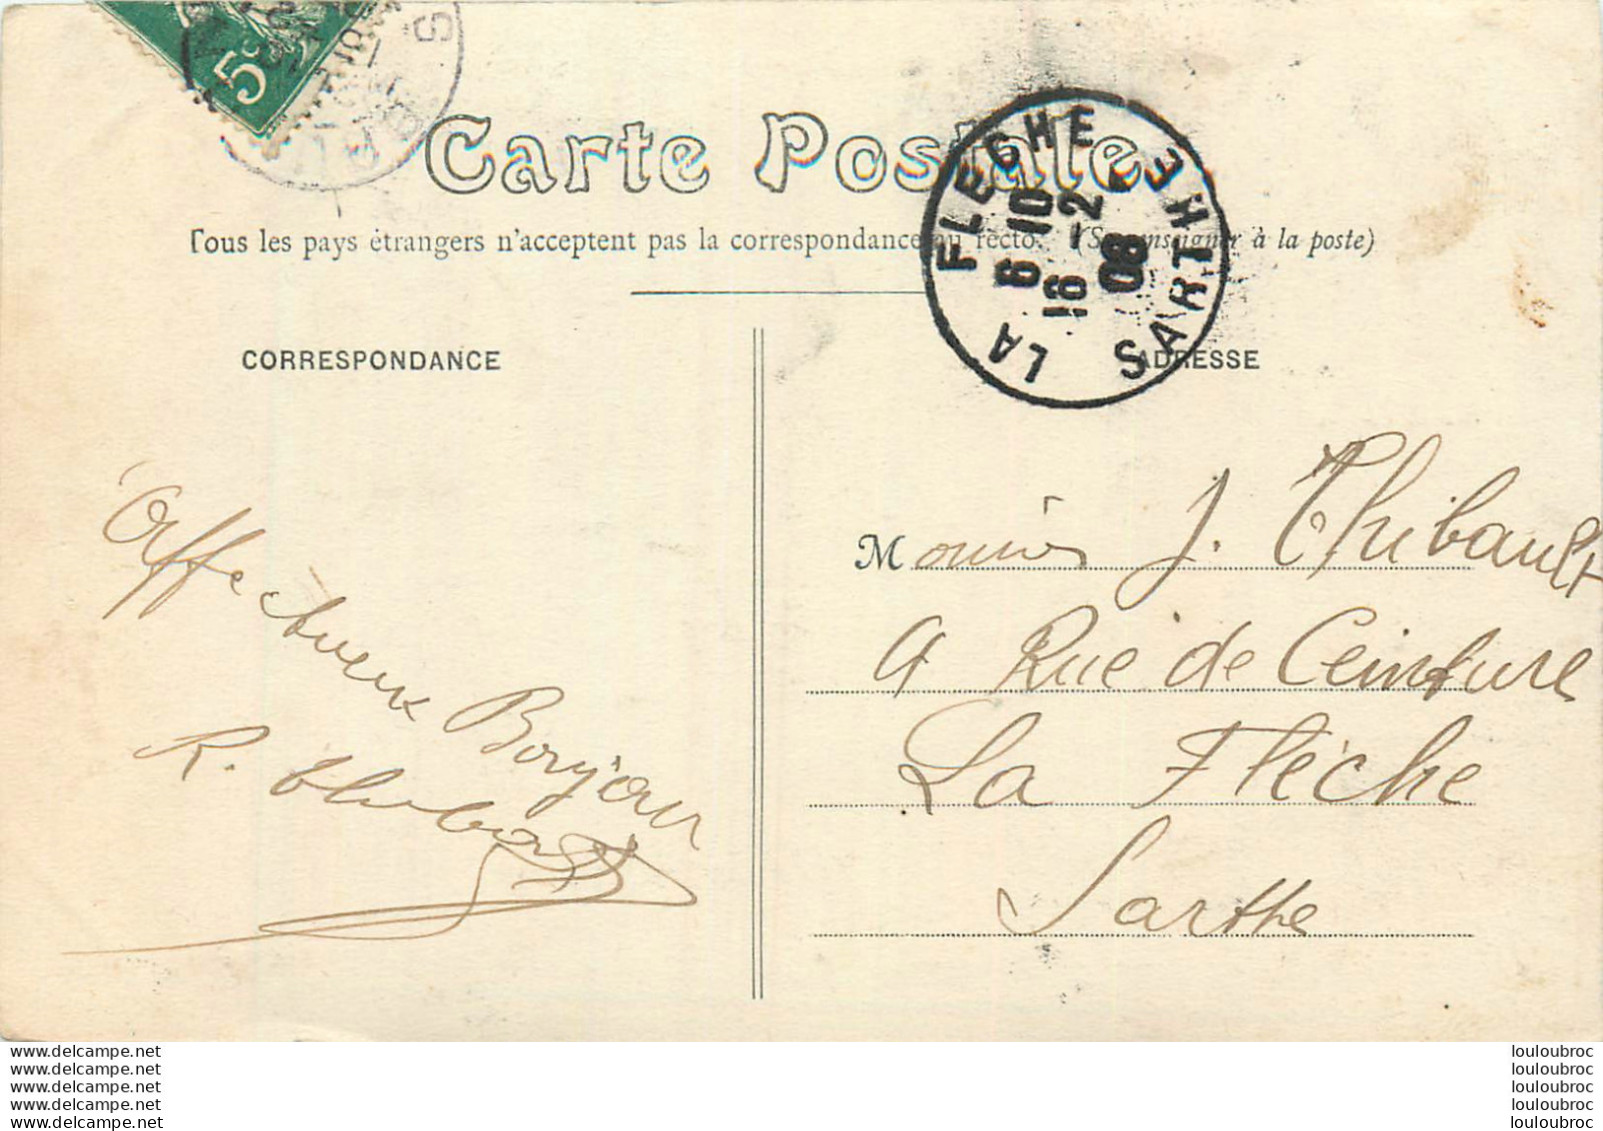 5c
Carte Postale
Tous les pays étrangers n'acceptent pas la correspondance au recto. (Se renseigner à la poste)
LA FLECHE SARTHE
6 10
16 -2
08
CORRESPONDANCE
ADRESSE
Affectueux Bonjour
R. Thibault
Monsieur J. Thibault
9 Rue de Ceinture
La Flèche
Sarthe
www.delcampe.net
www.delcampe.net
www.delcampe.net
www.delcampe.net
www.delcampe.net
louloubroc
louloubroc
louloubroc
louloubroc
louloubroc